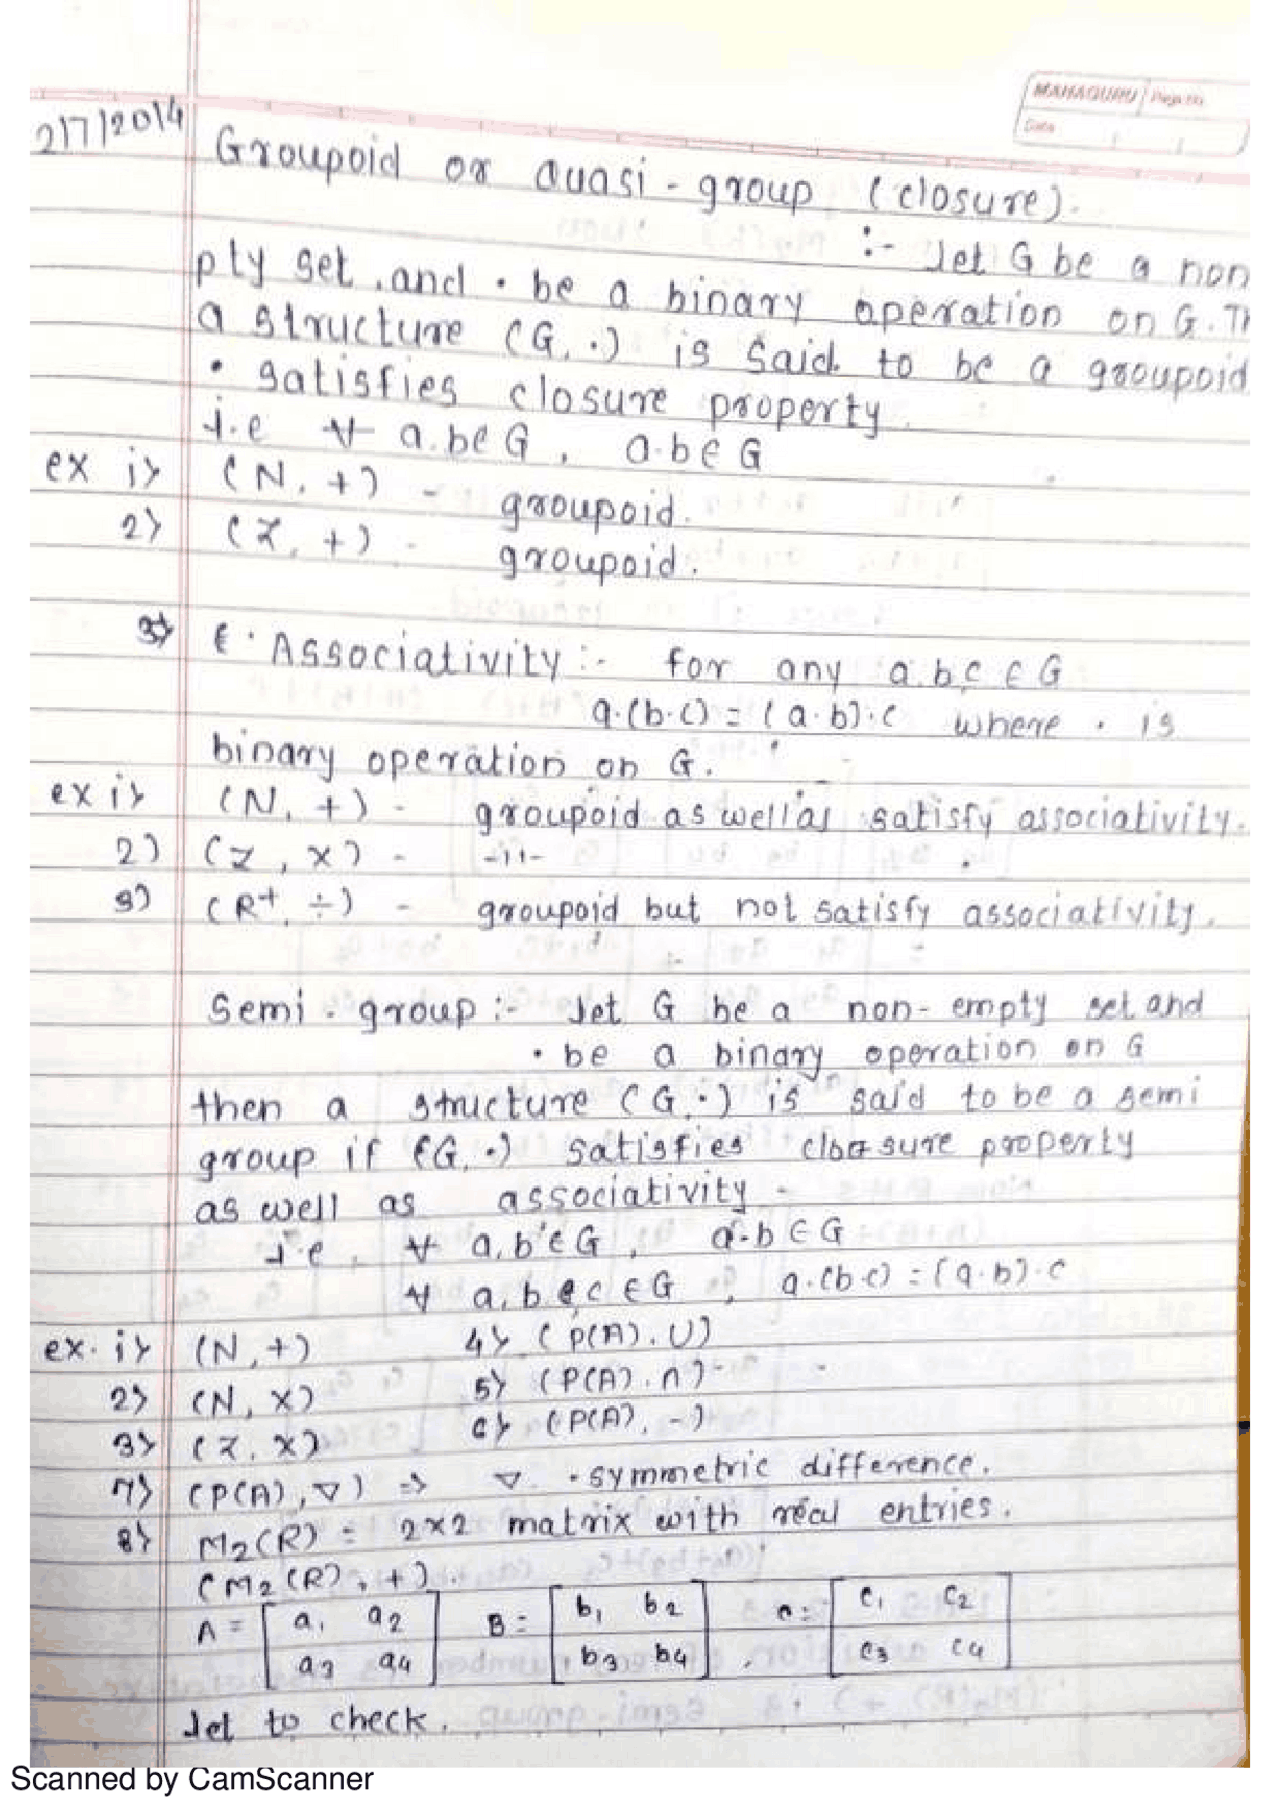 MAHAGURU Page No.
Date
2/7/2014
Groupoid or Quasi-group (closure).
:- Let G be a non
pty set, and • be a binary operation on G. Th
a structure (G, •) is said to be a groupoid
• satisfies closure property.
i.e ∀ a, b∈G, a·b∈G
ex i> (N, +) - groupoid.
2> (Z, +) - groupoid.
3> Associativity :- for any a, b, c ∈ G
a·(b·c) = (a·b)·c where • is
binary operation on G.
ex i> (N, +) - groupoid as well as satisfy associativity.
2) (Z, X) - -11-
3) (R+, ÷) - groupoid but not satisfy associativity.
Semi-group :- Let G be a non-empty set and
• be a binary operation on G
then a structure (G, •) is said to be a semi
group if (G, •) satisfies closure property
as well as associativity -
i.e, ∀ a, b ∈ G, a·b ∈ G
∀ a, b, c ∈ G, a·(b·c) = (a·b)·c
ex. i> (N, +) 4> (P(A), U)
2> (N, X) 5> (P(A), ∩)
3> (Z, X) 6> (P(A), -)
7> (P(A), ▽) => ▽ - symmetric difference.
8> M2(R) = 2x2 matrix with real entries.
(M2(R), +).
A = [a1 a2 B = [b1 b2 c = [c1 c2
a3 a4] b3 b4], c3 c4]
Let to check.
Scanned by CamScanner